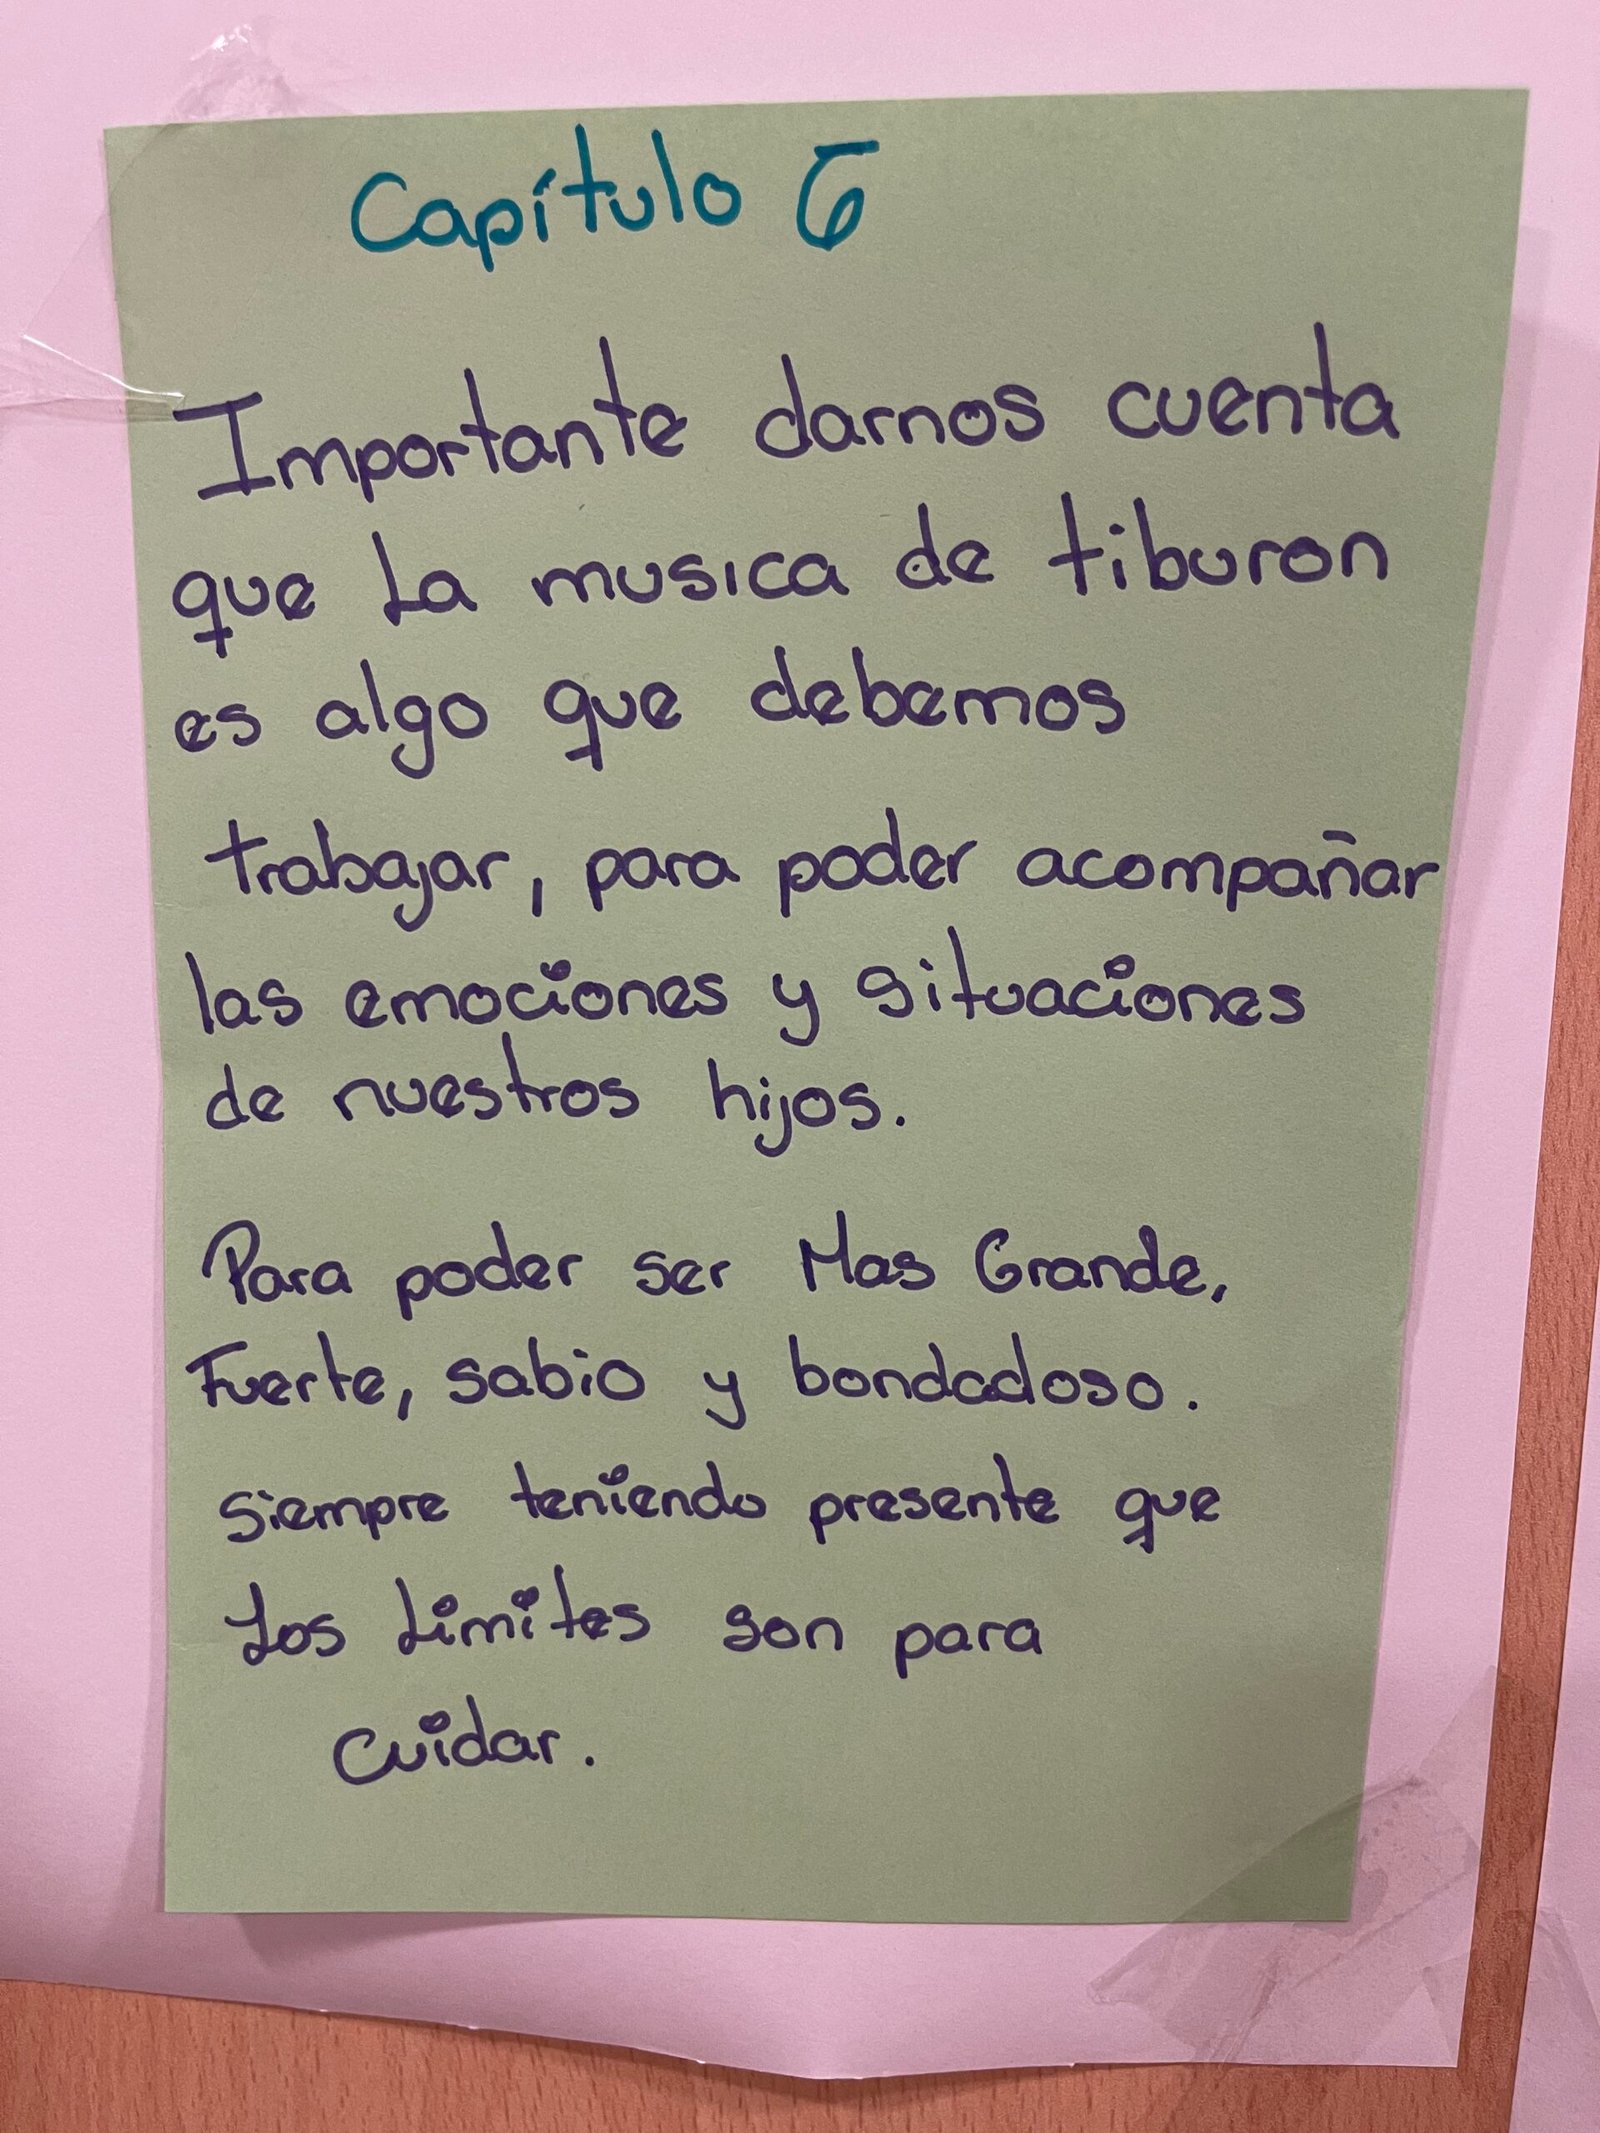 Capítulo 6
Importante darnos cuenta
que La musica de tiburon
es algo que debemos
trabajar, para poder acompañar
las emociones y situaciones
de nuestros hijos.
Para poder ser Mas Grande,
Fuerte, sabio y bondadoso.
siempre teniendo presente que
Los Limites son para
cuidar.